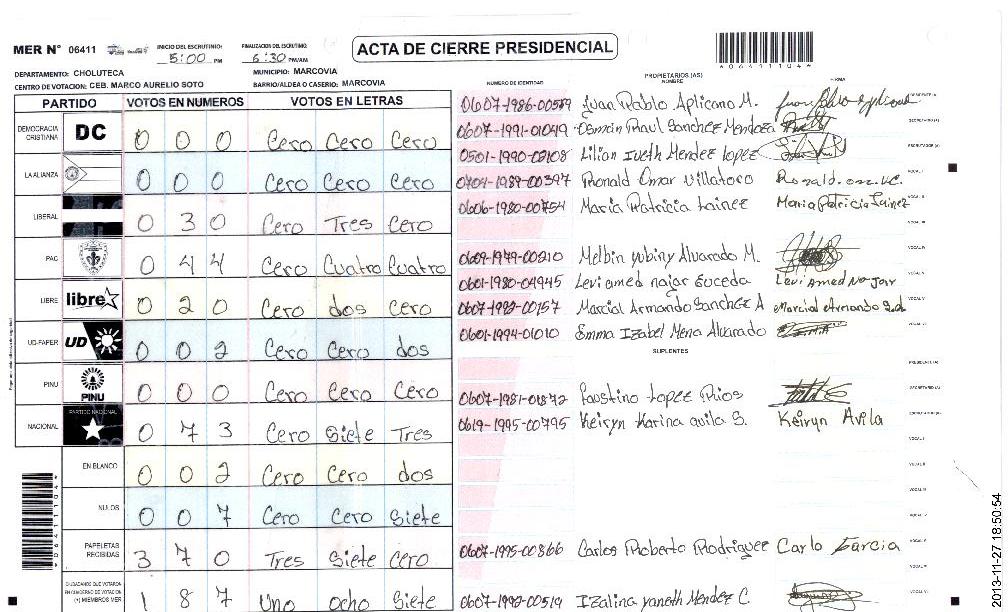 MER N° 06411
INICIO DEL ESCRUTINIO: 5:00 PM
FINALIZACION DEL ESCRUTINIO: 6:30 PM/AM
ACTA DE CIERRE PRESIDENCIAL
DEPARTAMENTO: CHOLUTECA
MUNICIPIO: MARCOVIA
CENTRO DE VOTACION: CEB. MARCO AURELIO SOTO
BARRIO/ALDEA O CASERIO: MARCOVIA
PARTIDO VOTOS EN NUMEROS VOTOS EN LETRAS
DEMOCRACIA CRISTIANA DC 0 0 0 Cero Cero Cero
LA ALIANZA 0 0 0 Cero Cero Cero
LIBERAL 0 3 0 Cero Tres Cero
PAC 0 4 4 Cero Cuatro Cuatro
LIBRE libre 0 2 0 Cero dos cero
UD-FAPER UD 0 0 2 Cero Cero dos
PINU PINU 0 0 0 Cero Cero Cero
NACIONAL PARTIDO NACIONAL 0 7 3 Cero Siete Tres
EN BLANCO 0 0 2 Cero Cero dos
NULOS 0 0 7 Cero Cero Siete
PAPELETAS RECIBIDAS 3 7 0 Tres Siete Cero
CIUDADANOS QUE VOTARON EN CUADERNO DE VOTACION (+) MIEMBROS MER 1 8 7 Uno ocho Siete
064111044
NUMERO DE IDENTIDAD PROPIETARIOS (AS) NOMBRE FIRMA
Juan Pablo Aplicano M. PRESIDENTE (A)
0607-1991-01049 Osman Raul Sanchez Mendoza SECRETARIO (A)
0501-1990-02108 Lilian Iveth Mendez lopez ESCRUTADOR (A)
0704-1987-00397 Ronald Omar Villatoro VOCAL I
0606-1980-00754 Maria Patricia Lainez Maria Patricia Lainez VOCAL II
VOCAL III
0609-1979-00210 Melbin yubiny Alvarado M. VOCAL IV
0601-1980-04945 Levi amed najar Euceda Levi Amed Najar VOCAL V
Marcial Armando Sanchez A Marcial Armando VOCAL VI
0601-1994-01010 Emma Izabel Mena Alvarado
SUPLENTES
PRESIDENTE (A)
0607-1981-01872 Faustino Lopez Rios SECRETARIO (A)
0619-1995-00795 Keiryn Karina avila S. Keiryn Avila ESCRUTADOR (A)
VOCAL I
VOCAL II
VOCAL III
VOCAL IV
0607-1995-00866 Carlos Roberto Rodriguez Carlo Garcia VOCAL V
0607-1992-00519 Izalina yaneth Mendez C. VOCAL VI
2013-11-27 18:50:54